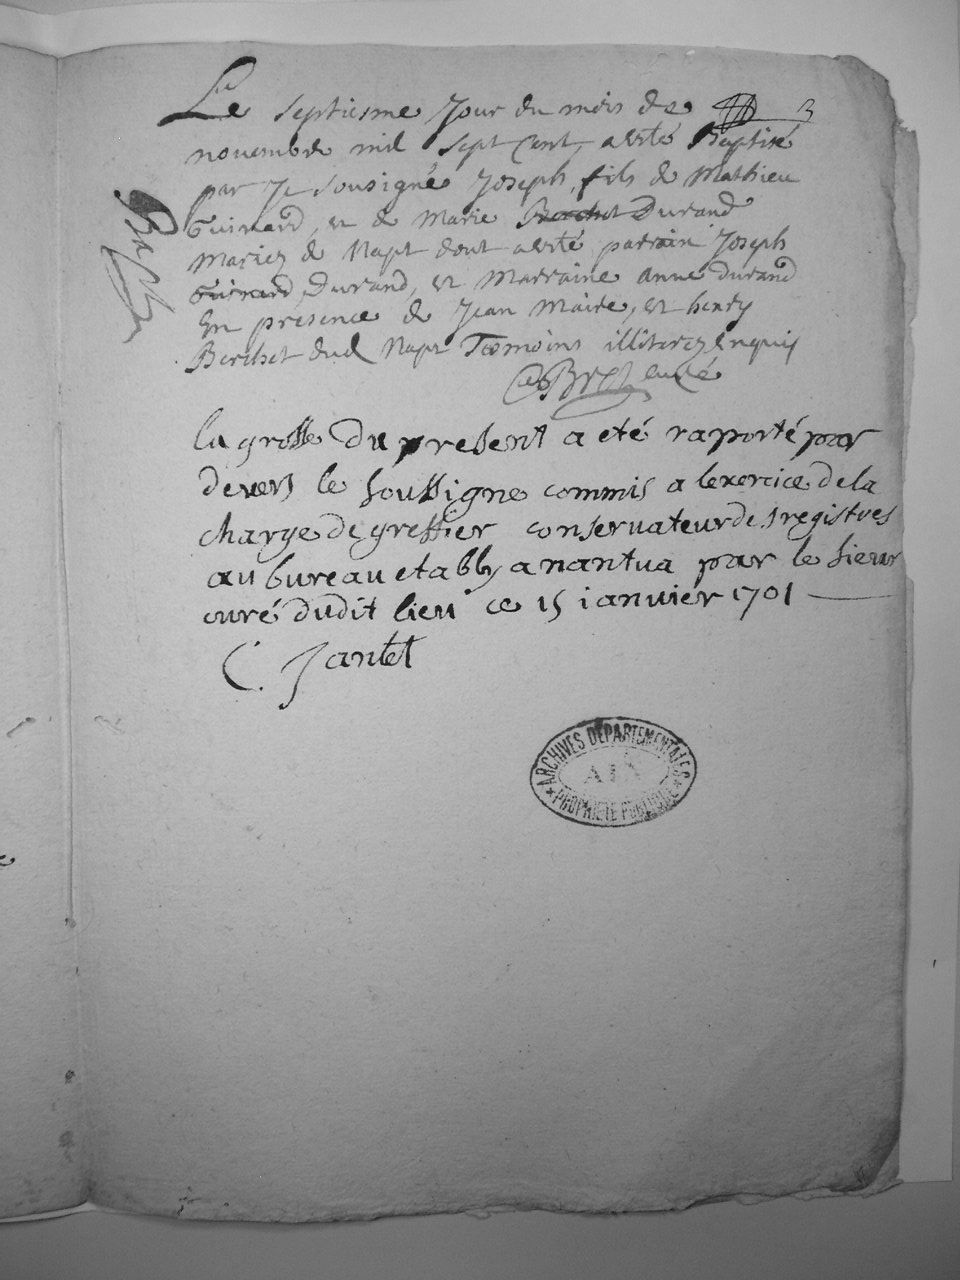 3
Le septiesme Jour du mois de
novembre mil sept cent, a esté Baptisé
par Je sousigné Joseph, fils de Mathieu
Guinard, et de Marie Durand
Mariez de Napt dont a esté parrain Joseph
Guinard, Durand, et Marraine Anne Durand
En presence de Jean Maire, et henry
Berchet dud Napt Tesmoins illiterez Enquis
curé
la grosse du present a eté raporté par
devers le soussigne commis a lexercice de la
charge de greffier conservateur des registres
au bureau etably a nantua par le sieur
curé dudit lieu ce 15 ianvier 1701
C. Jantet
ARCHIVES DEPARTEMENTALES
AIN
PROPRIETE PUBLIQUE